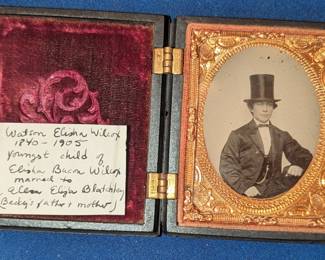 Watson Elisha Wilcox
1840-1905
youngest child of
Elisha Bacon Wilcox
married to
Ellen Eliza Blatchley
(Becky's father + mother)